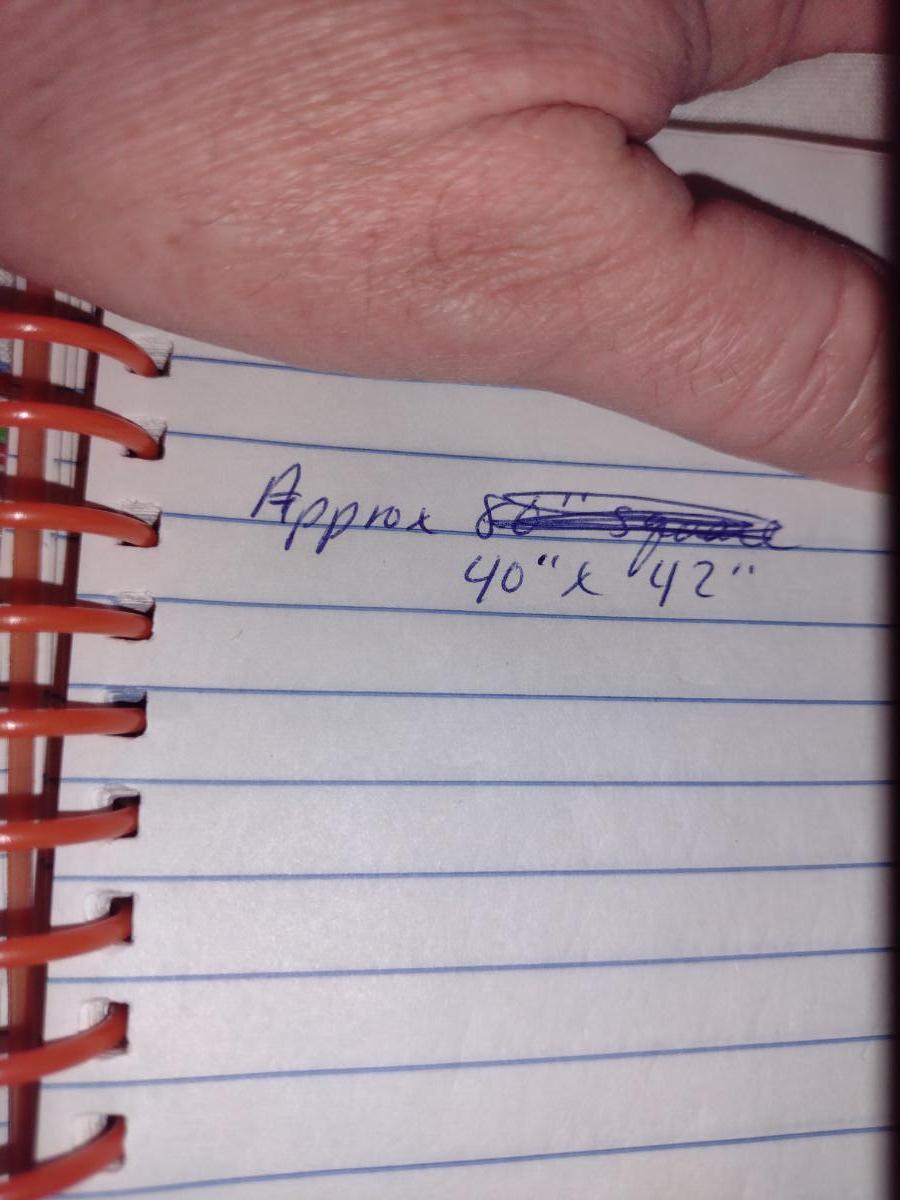 Approx 80" square
40" x 42"